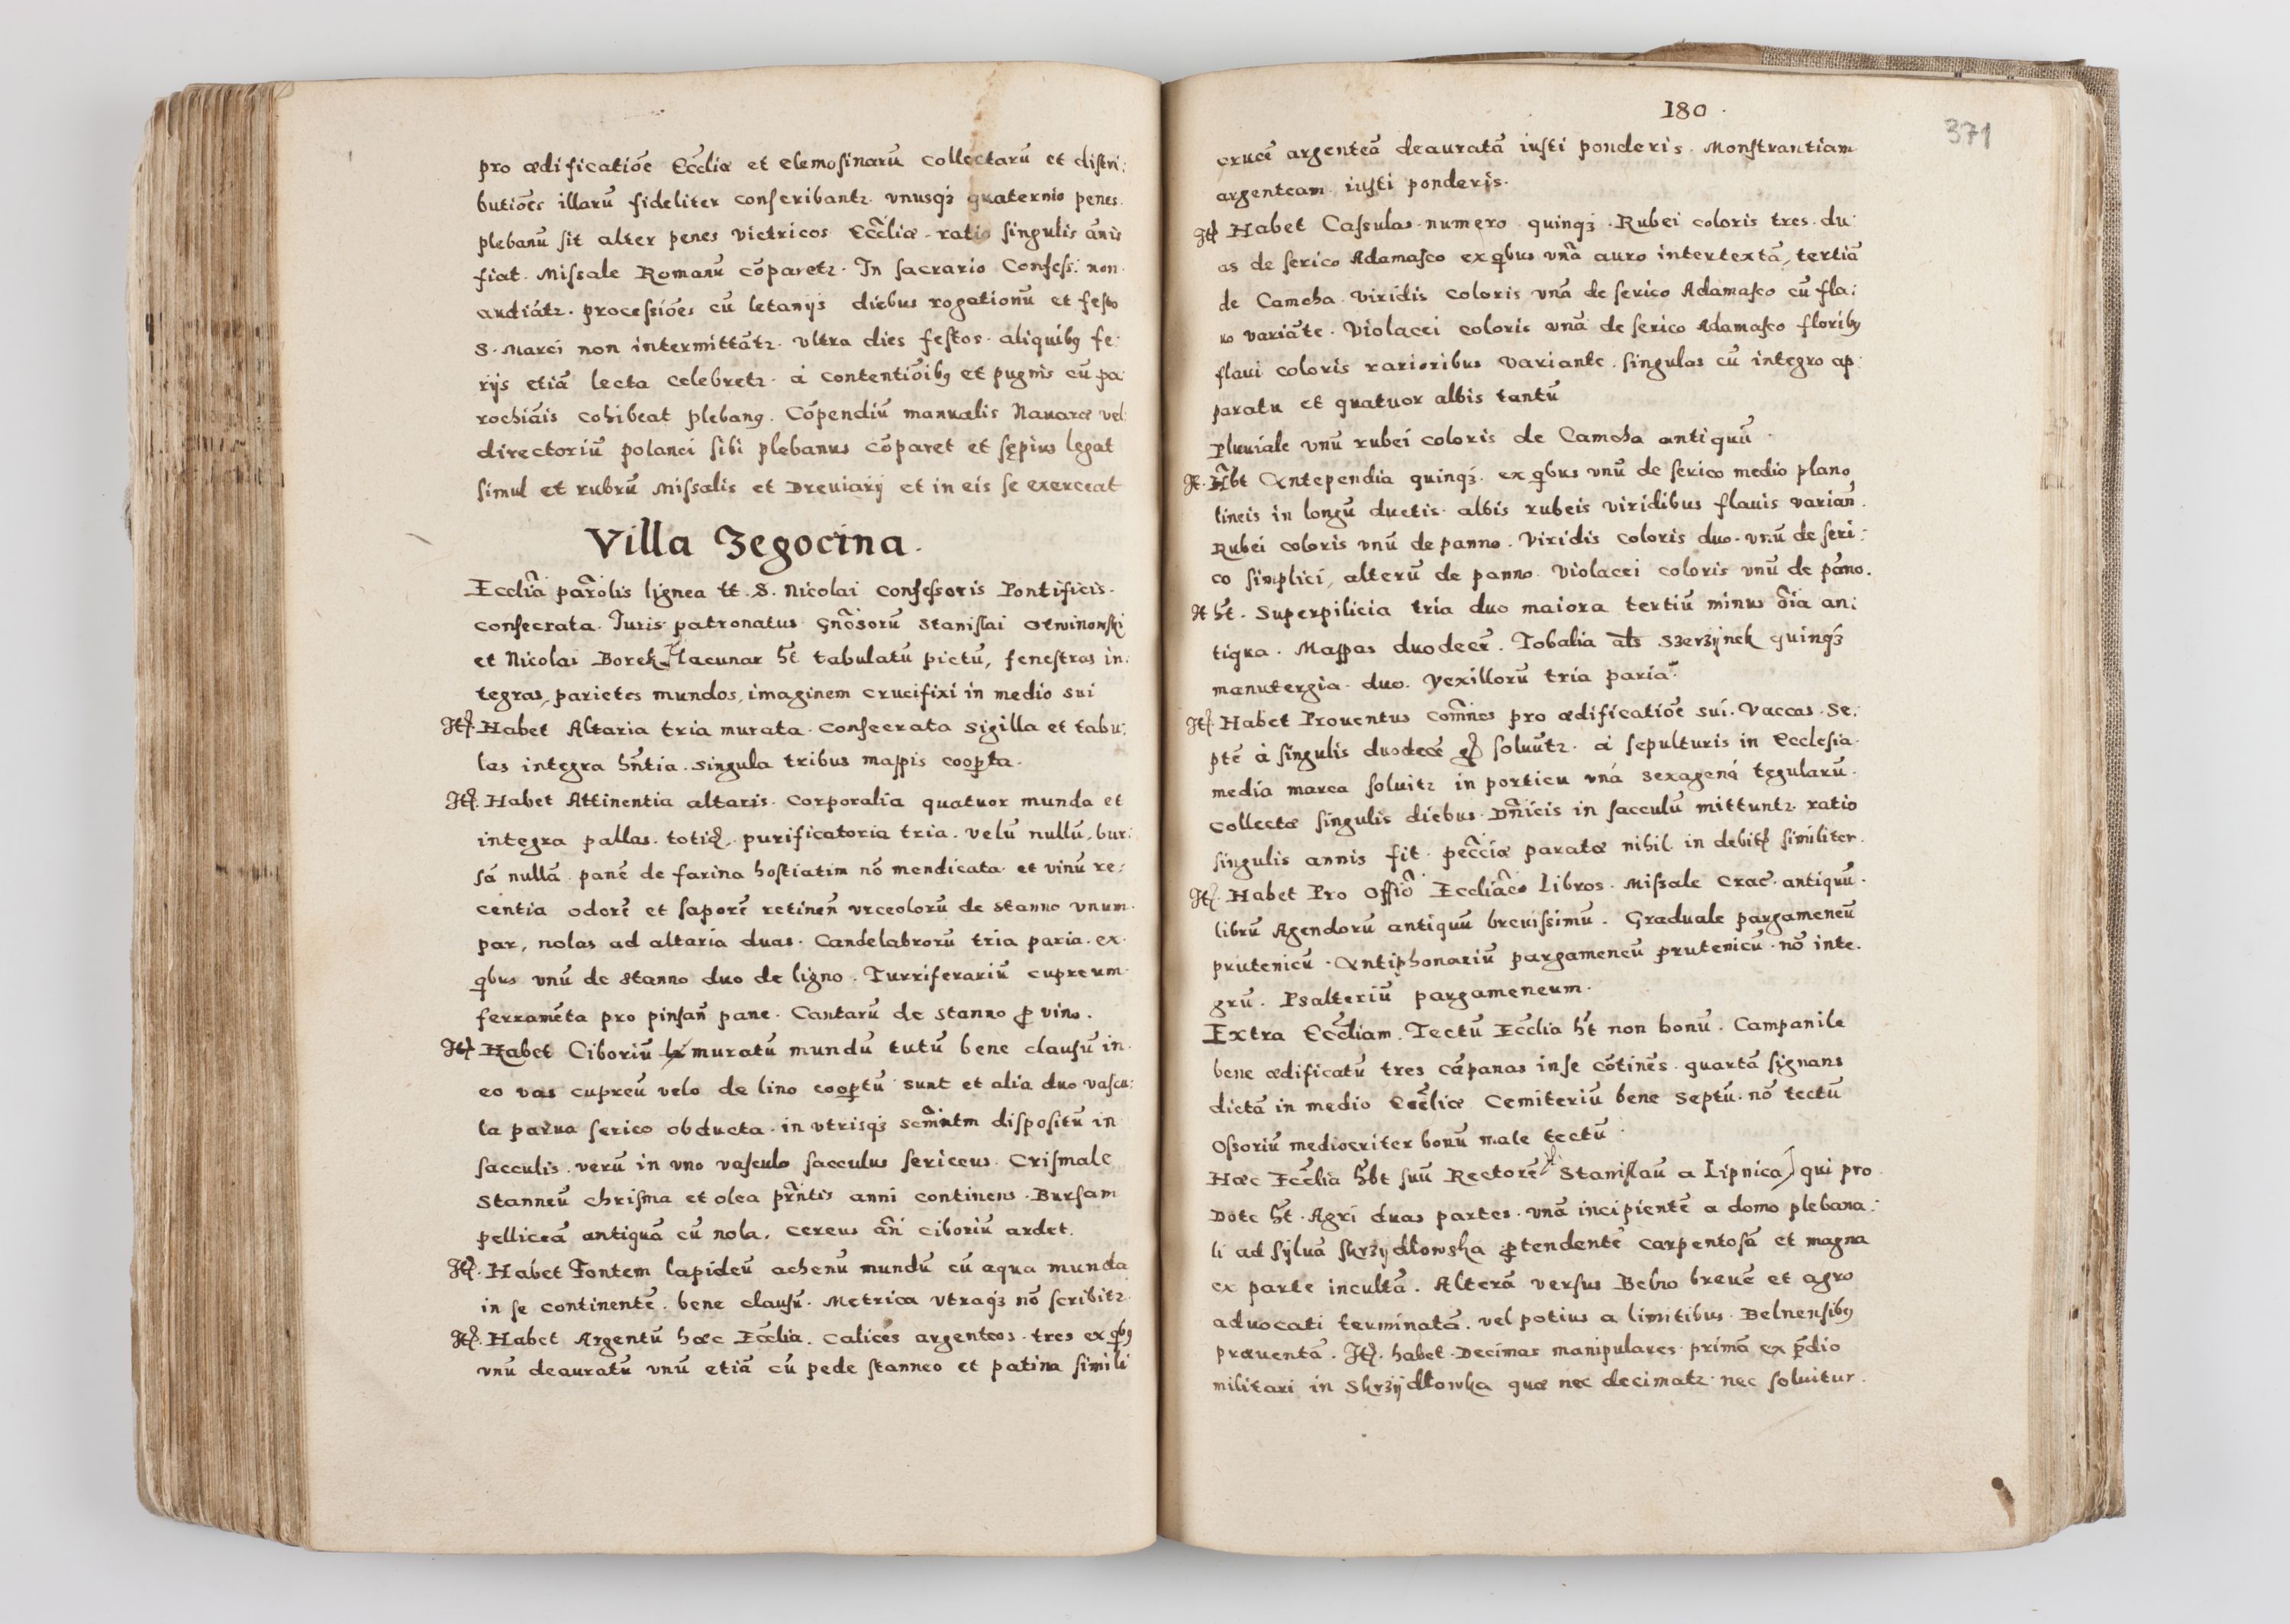 pro ædificatiōe Eccliæ et elemosinarū collectarū et distri:
butiōes illarū fideliter conscribantr. vnusqȝ quaternio penes
plebanū sit alter penes vietricos Eccliæ. ratio singulis ānis
fiat. Missale Romanū cōparetr. In sacrario Confess: non
audiātr. processiōes cū letanijs diebus rogationū et festo
S. Marci non intermittātr. vltra dies festos aliquibꝰ fe:
rijs etiā lecta celebretr. à contentiōibꝰ et pugnis cū pa:
rochiāis cohibeat plebanꝰ. Cōpendiū manualis Nauaræ vel
directoriū polanci sibi plebanus cōparet et sępius legat
simul et rubrū Missalis et Breuiarij et in eis se exerceat
Villa Zegocina.
Ecclia parolis lignea tt. S. Nicolai Confessoris Pontificis.
consecrata. Juris patronatus Gnōsorū Stanislai Otwinowski
et Nicolai Borek lacunar ht tabulatū pictū, fenestras in:
tegras, parietes mundos, imaginem crucifixi in medio sui
Itē. Habet Altaria tria murata. Consecrata sigilla et tabu:
las integra hntia. singula tribus mappis coopta.
Itē. Habet Attinentia altaris. Corporalia quatuor munda et
integra pallas. totiđ. purificatoria tria. velū nullū. bur:
sā nullā. panē de farina hostiarum nō mendicata et vinū re:
centia odorē et saporē retineñ vrceolorū de stanno vnum
par, nolas ad altaria duas. Candelabrorū tria paria. ex
qbus vnū de stanno duo de ligno. Turriferariū cupreum
ferramēta pro pinsañ pane. Cantarū de stanno ꝓ vino.
Itē Habet Ciboriū muratū mundū tutū bene clausū in
eo vas cupreū velo de lino cooptū sunt et alia duo vascu:
la parua serico obducta. in vtrisqȝ scm̄ntm dispositū in
sacculis. verū in vno vasculo sacculus sericeus. Crismale
Stanneū chrisma et olea prn̄tis anni continens. Bursam
pelliceā antiquā cū nola. cereus añ ciboriū ardet.
Itē. Habet Fontem lapideū achenū mundū cū aqua munda
in se continentē. bene clausū. Metrica vtraqȝ nō scribitr.
Itē. Habet Argentū hæc Ecclia. calices argenteos. tres ex qbꝰ
vnū deauratū vnū etiā cū pede stanneo et patina simili
180.
371
crucē argenteā deauratā iusti ponderis. Monstrantiam
argenteam iusti ponderis.
Itē Habet Cassulas numero quinqȝ. Rubei coloris tres. du:
as de serico Adamasco ex qbus vnā auro intertextā, tertiā
de Camcha. viridis coloris vnā de serico Adamasco cū fla:
uo variāte. Violacei coloris vnā de serico Adamasco floribꝰ
flaui coloris rarioribus variante. singulas cū integro ap:
paratu et quatuor albis tantū
Pluuiale vnū rubei coloris de Camcha antiquū.
It. Hbt Antependia quinqȝ. ex qbus vnū de serico medio plano
lineis in longū ductis. albis rubeis viridibus flauis varian.
Rubei coloris vnū de panno. Viridis coloris duo. vnū de seri:
co simplici, alterū de panno. Violacei coloris vnū de pāno.
It ht. Superpilicia tria duo maiora tertiū minus oīa an:
tiqua. Mappas duodecē. Tobalia als Szerzynek quinqȝ
manutergia. duo. Vexillorū tria paria.
Itē. Habet Prouentus com̄nes pro ædificatiōe sui. Vaccas. Se:
ptē à singulis duodecē gɼ soluūtr. à sepulturis in Ecclesia
media marca soluitr in porticu vnā sexagenā tęgularū.
Collectæ singulis diebus. Dnicis in sacculū mittuntr. ratio
singulis annis fit. pecciæ paratæ nihil. in debitis similiter.
Itē. Habet Pro Offiō Eccliaco Libros. Missale Crac. antiquū.
librū Agendorū antiquū breuissimū. Graduale pargameneū
prutenicū. Antiphonariū pargameneū prutenicū. nō inte.
grū. Psalteriū pargameneum.
Extra Eccliam. Tectū Ecclia ht non bonū. Campanile
bene ædificatū tres cāpanas in se cōtinēs. quartā signans
dictā in medio Eccliæ Cemiteriū bene septū. nō tectū
Ossoriū mediocriter bonū male tectū.
Hæc Ecclia hbt suū Rectorē Stanislaū a Lipnica qui pro
Dote ht. Agri duas partes. vnā incipientē a domo plebana:
li ad syluā skrzydłowska ꝓtendentē carpentosā et magna
ex parte incultā. Alterā versus Belno breuē et agro
aduocati terminatā. vel potius a limitibus. Belnensibꝰ
præuentā. Itē. habet. Decimas manipulares. primā ex p̄dio
militari in Skrzydłowka quæ nec decimatr. nec soluitur.